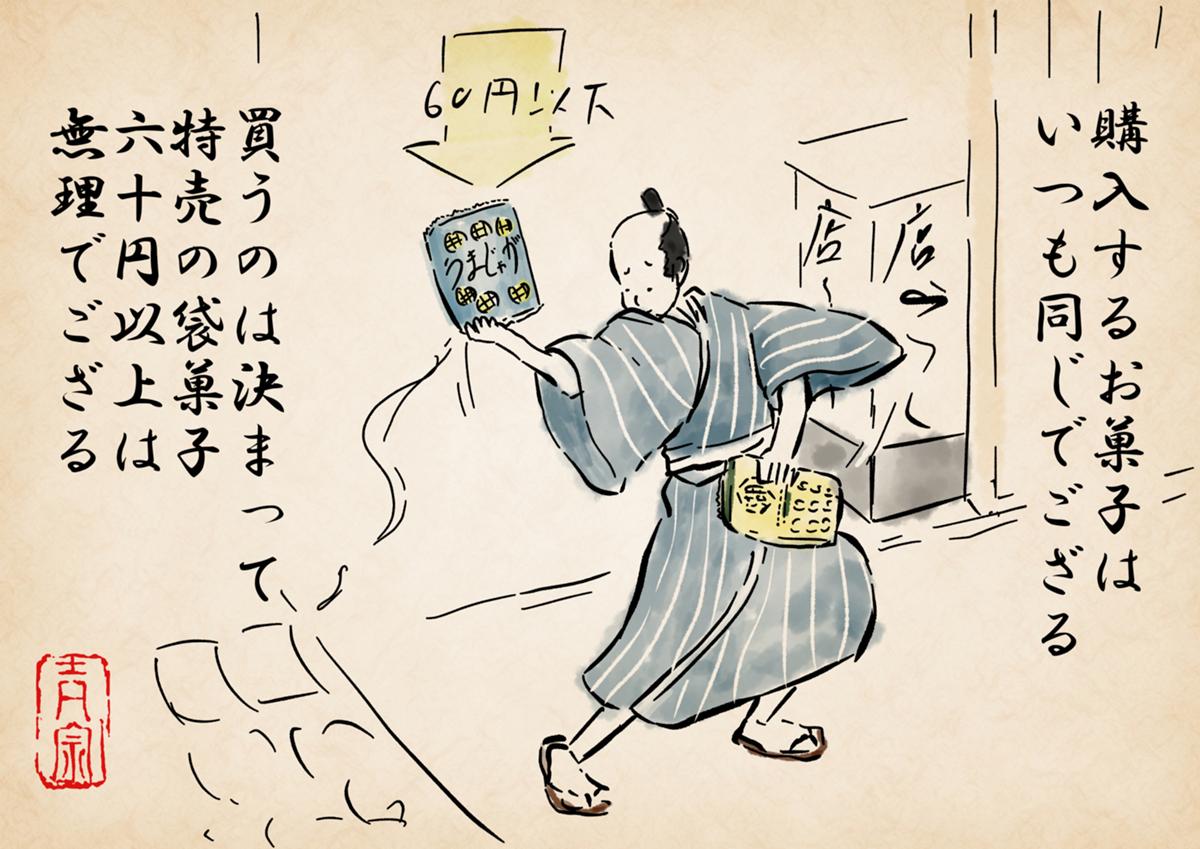 購入するお菓子は
いつも同じでござる
店
店
60円以下
うまじゃが
買うのは決まって
特売の袋菓子
六十円以上は
無理でござる
青宗